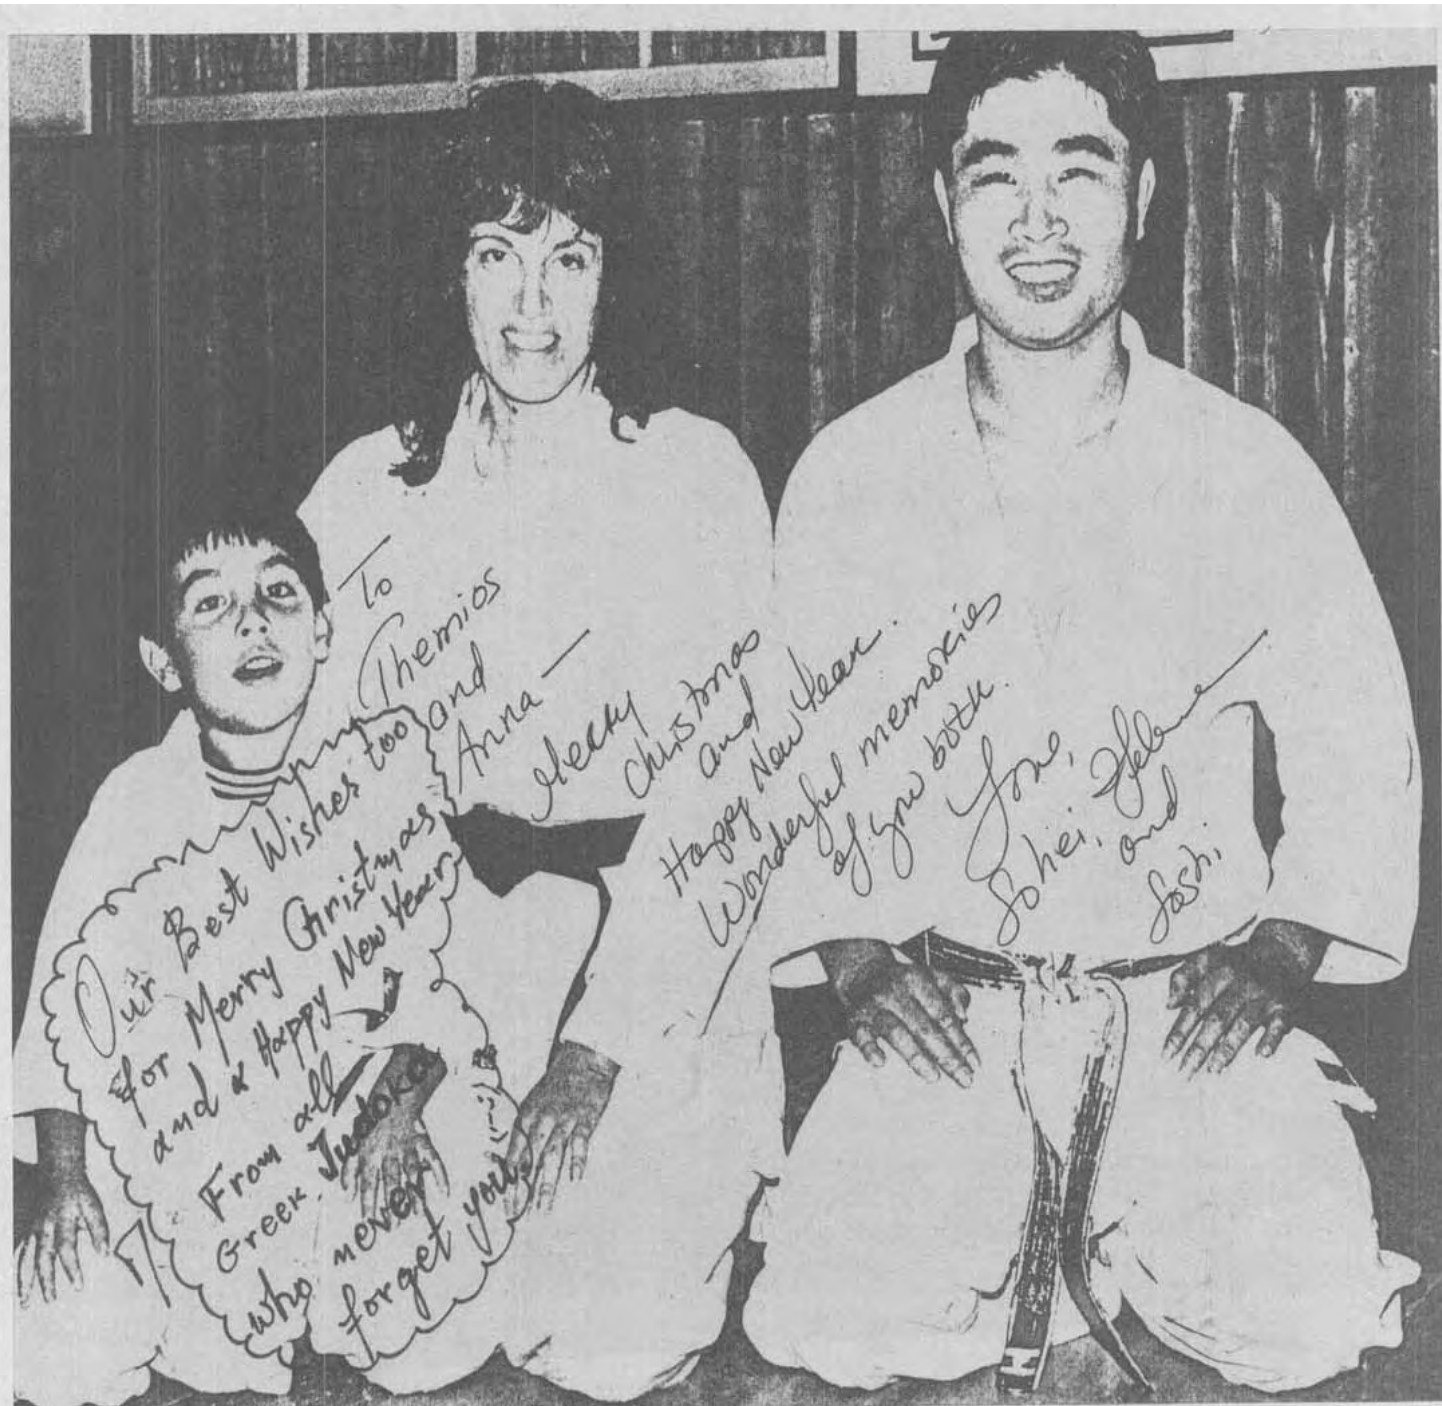 To
Themios
and
Anna —
Merry
Christmas
and
Happy New Year.
Wonderful memories
of you both.
Love,
Sohei, Helene
and
Sashi
Our Best Wishes too
for Merry Christmas
and a Happy New Year
From all
Greek Judoka
who never
forget you